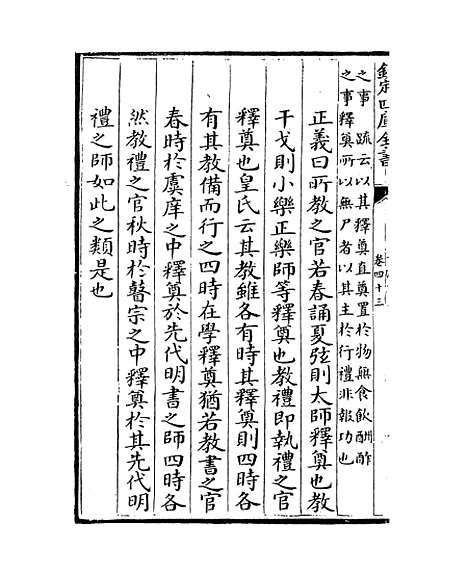 欽定四庫全書
卷四十三
之事疏云以其釋奠直奠置於物無食飲酬酢
之事釋奠所以無尸者以其主於行禮非報功也
正義曰所教之官若春誦夏弦則太師釋奠也教
干戈則小樂正樂師等釋奠也教禮即執禮之官
釋奠也皇氏云其教雖各有時其釋奠則四時各
有其教備而行之四時在學釋奠猶若教書之官
春時於虞庠之中釋奠於先代明書之師四時各
然教禮之官秋時於瞽宗之中釋奠於其先代明
禮之師如此之類是也